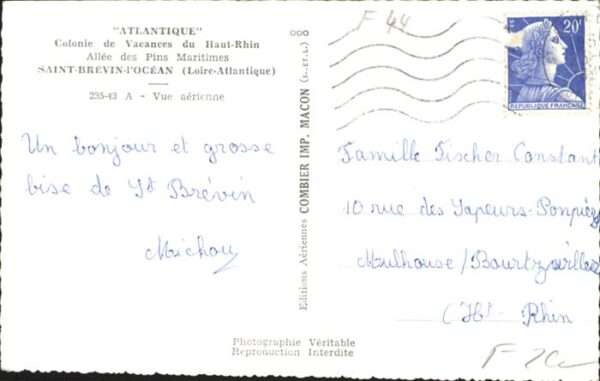 "ATLANTIQUE"
Colonie de Vacances du Haut-Rhin
Allée des Pins Maritimes
SAINT-BREVIN-l'OCÉAN (Loire-Atlantique)
235-43 A - Vue aérienne
Un bonjour et grosse
bise de St Brévin
Michou
Editions Aériennes COMBIER IMP. MACON (S.-ET-L.)
F 44
20F
REPUBLIQUE FRANÇAISE
Famille Fischer Constant
10 rue des Sapeurs-Pompiers
Mulhouse/Bourtzwiller
(Ht-Rhin
Photographie Véritable
Reproduction Interdite